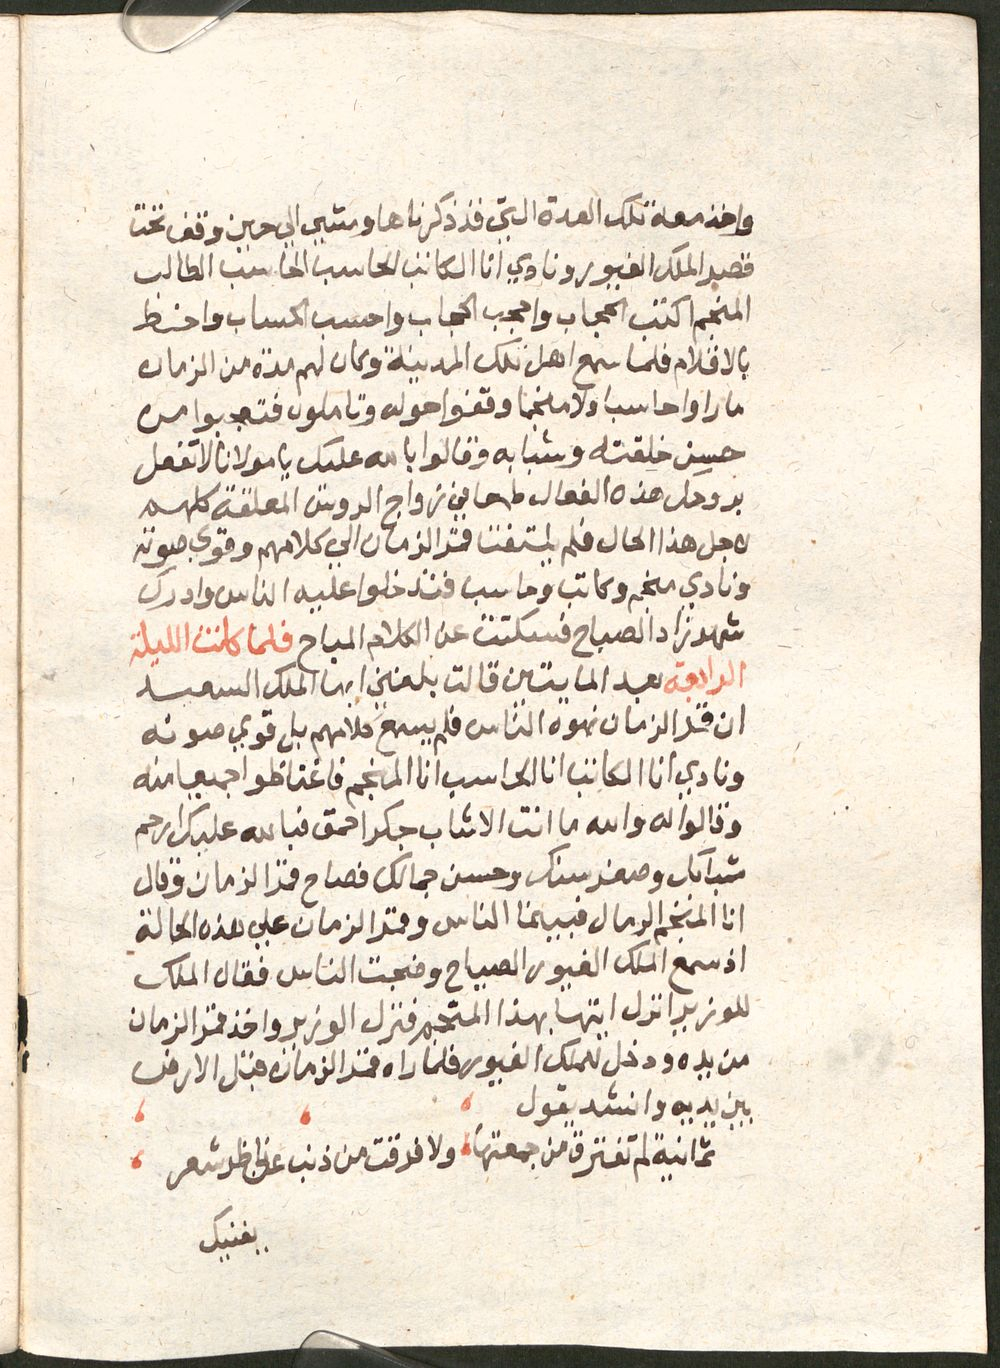 واخذ معه تلك العدة التي قد ذكرناها ومشي الي حين وقف تحت
قصر الملك الغيور ونادي انا الكاتب الحاسب الحاسب الطالب
المنجم اكتب الحجاب واحجب الحجاب واحسب الحساب واخط
بالاقلام فلما سمع اهل تلك المدينة وكان لهم مدة من الزمان
ما راوا حاسبا ولا منجما وقفوا حوله وتاملوه فتعجبوا من
حسن خلقته وشبابه وقالوا بالله عليك يا مولانا لا تفعل
بروحك هذه الفعال طمعا في زواج الروس المعلقة كلهم
لاجل هذا الحال فلم يلتفت قمر الزمان الي كلامهم وقوي صوته
ونادي منجم وكاتب وحاسب فتدخلوا عليه الناس وادرك
شهرزاد الصباح فسكتت عن الكلام المباح فلما كانت الليلة
الرابعة بعد المايتين قالت بلغني ايها الملك السعيد
ان قمر الزمان نهوه الناس فلم يسمع كلامهم بل قوي صوته
ونادي انا الكاتب انا الحاسب انا المنجم فاغتاظوا جميعا منه
وقالوا له والله ما انت الا شاب جكر احمق فبالله عليك ارحم
شبابك وصغر سنك وحسن جمالك فصاح قمر الزمان وقال
انا المنجم الرمال فبينما الناس وقمر الزمان علي هذه الحالة
اذ سمع الملك الغيور الصياح وضجت الناس فقال الملك
للوزير انزل ايتنا بهذا المنجم فنزل الوزير واخذ قمر الزمان
من يده ودخل للملك الغيور فلما راه قمر الزمان قبل الارض
بين يديه وانشد يقول
ثمانية لم تفترق من جمعتها ولا فرقت من ذنب عن ناظر شعر
يفنيك